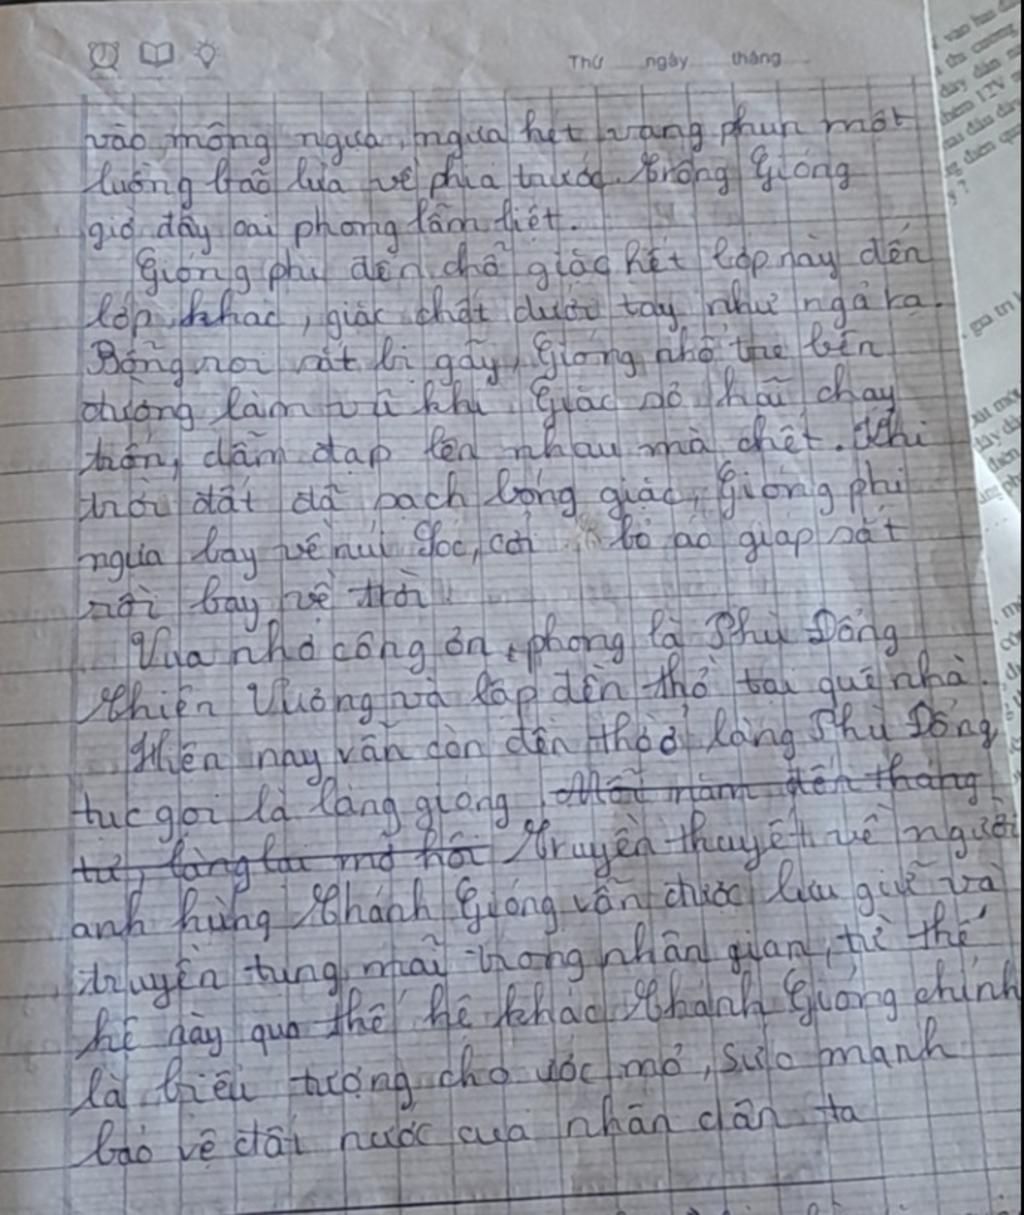 Thứ ngày tháng
vào mông ngựa, ngựa hét vang phun một
luồng bão lửa về phía trước. Trông Gióng
giờ đây oai phong lẫm liệt.
Gióng phi đến chỗ giặc hết lớp này đến
lớp khác, giặc chết dưới tay như ngả rạ.
Bỗng roi sắt bị gãy, Gióng nhổ tre bên
đường làm vũ khí. Giặc sợ hãi chạy
trốn, dẫm đạp lên nhau mà chết. Khi
trời đất đã sạch bóng giặc, Gióng phi
ngựa bay về núi Sóc, cởi bỏ áo giáp sắt
rồi bay về trời.
Vua nhớ công ơn, phong là Phù Đổng
Thiên Vương và lập đền thờ tại quê nhà.
Hiện nay vẫn còn đền thờ ở làng Phù Đổng
tục gọi là làng gióng. Mỗi năm đến tháng
tư, làng lại mở hội Truyền thuyết về người
anh hùng Thánh Gióng vẫn được lưu giữ và
truyền tụng mãi trong nhân gian, từ thế
hệ này qua thế hệ khác. Thánh Gióng chính
là biểu tượng cho ước mơ, sức mạnh
bảo vệ đất nước của nhân dân ta